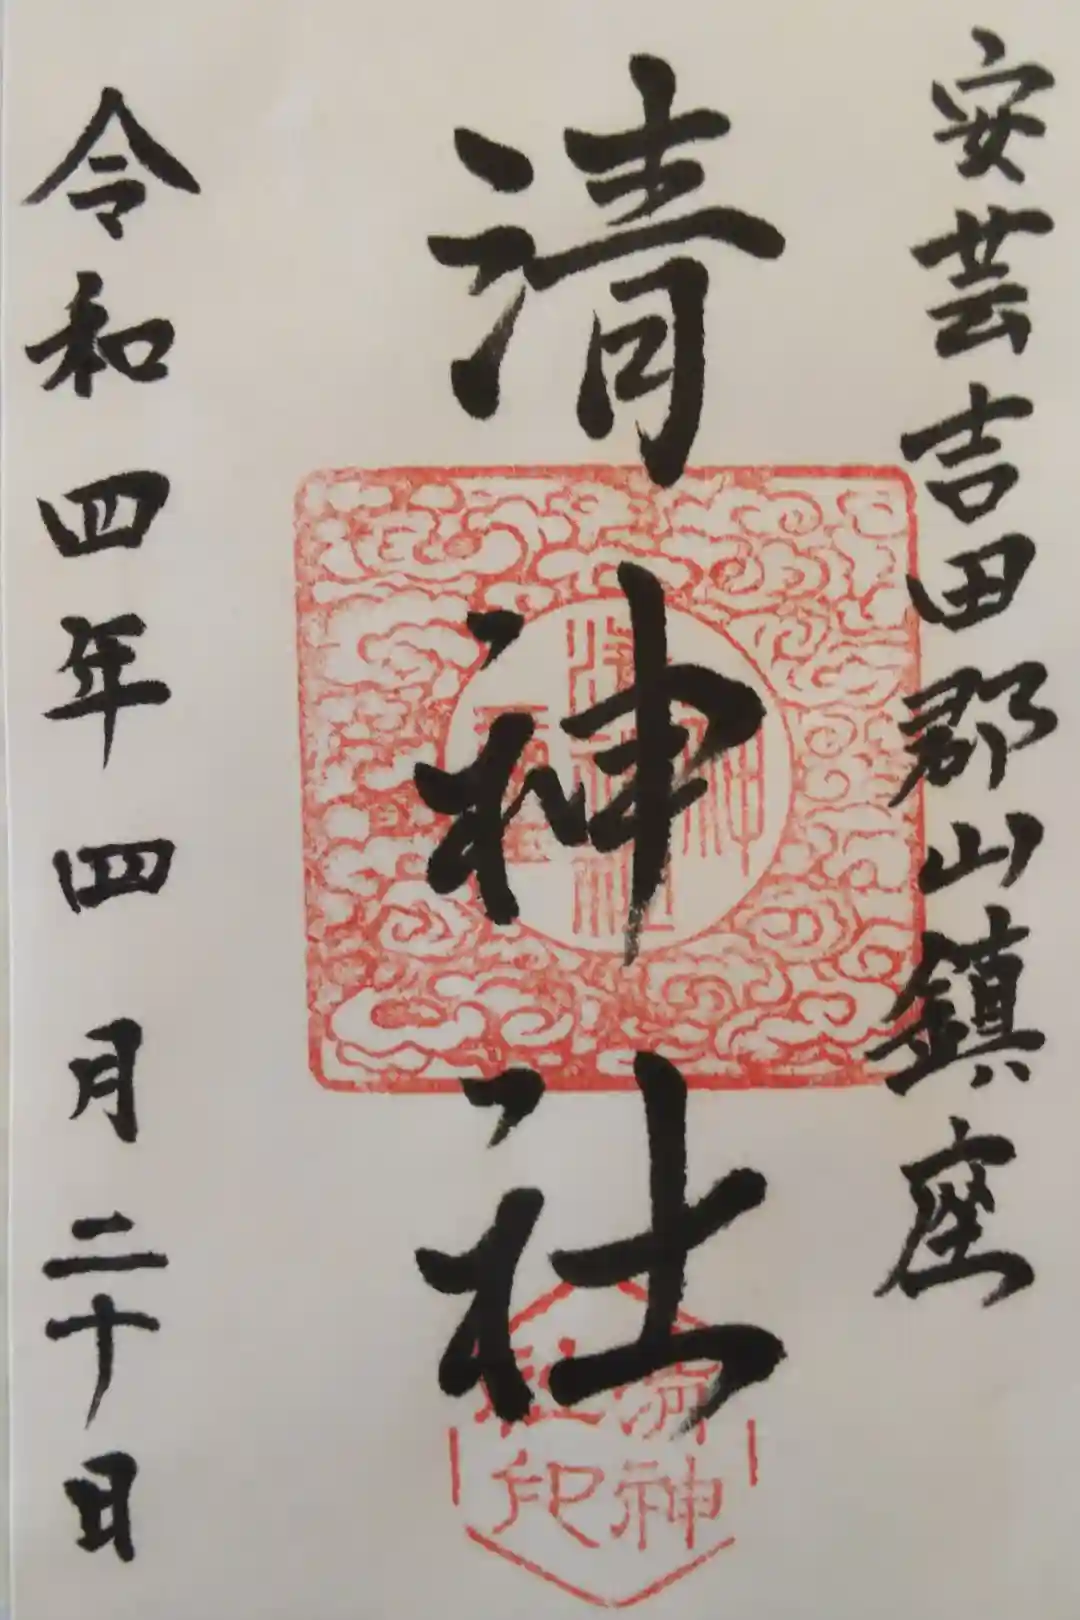 安芸吉田郡山鎮座
清神社
清神
社印
令和四年四月二十日